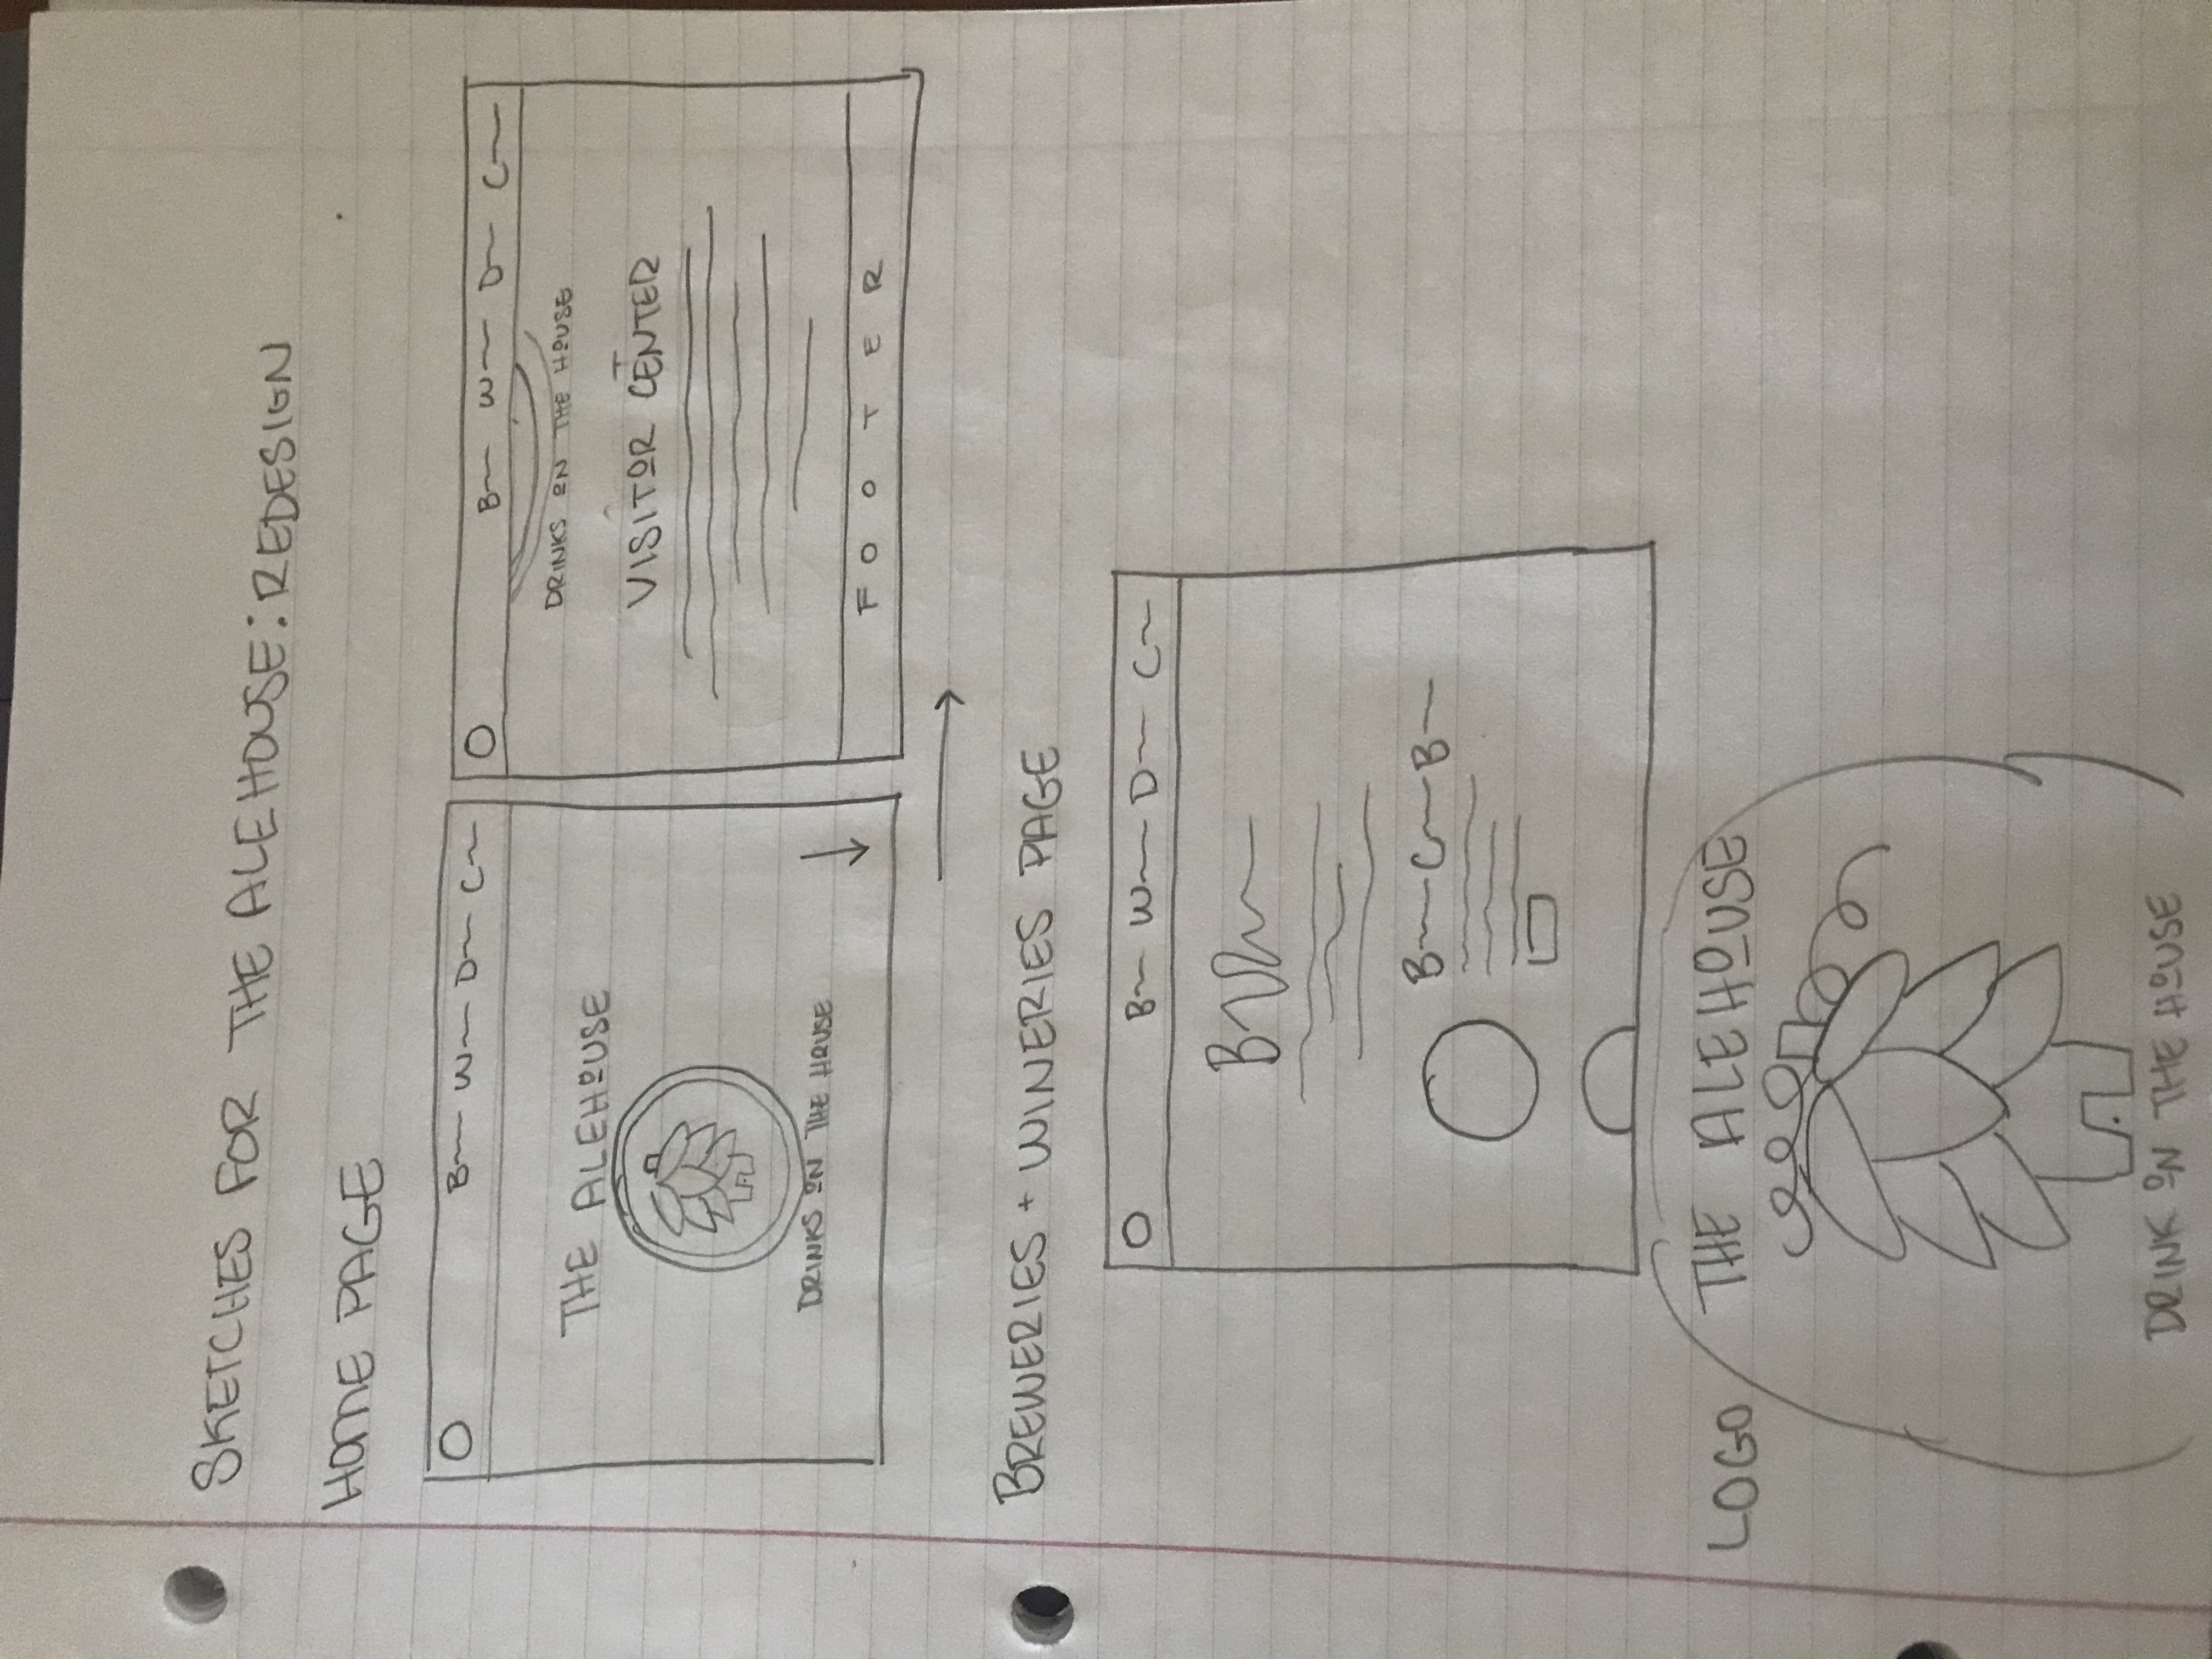 SKETCHES FOR THE ALEHOUSE: REDESIGN
HOME PAGE
B W D C
THE ALEHOUSE
DRINKS ON THE HOUSE
B W D C
DRINKS ON THE HOUSE
VISITOR CENTER
FOOTER
BREWERIES + WINERIES PAGE
B W D C
B
B C B
LOGO
THE ALEHOUSE
DRINK ON THE HOUSE